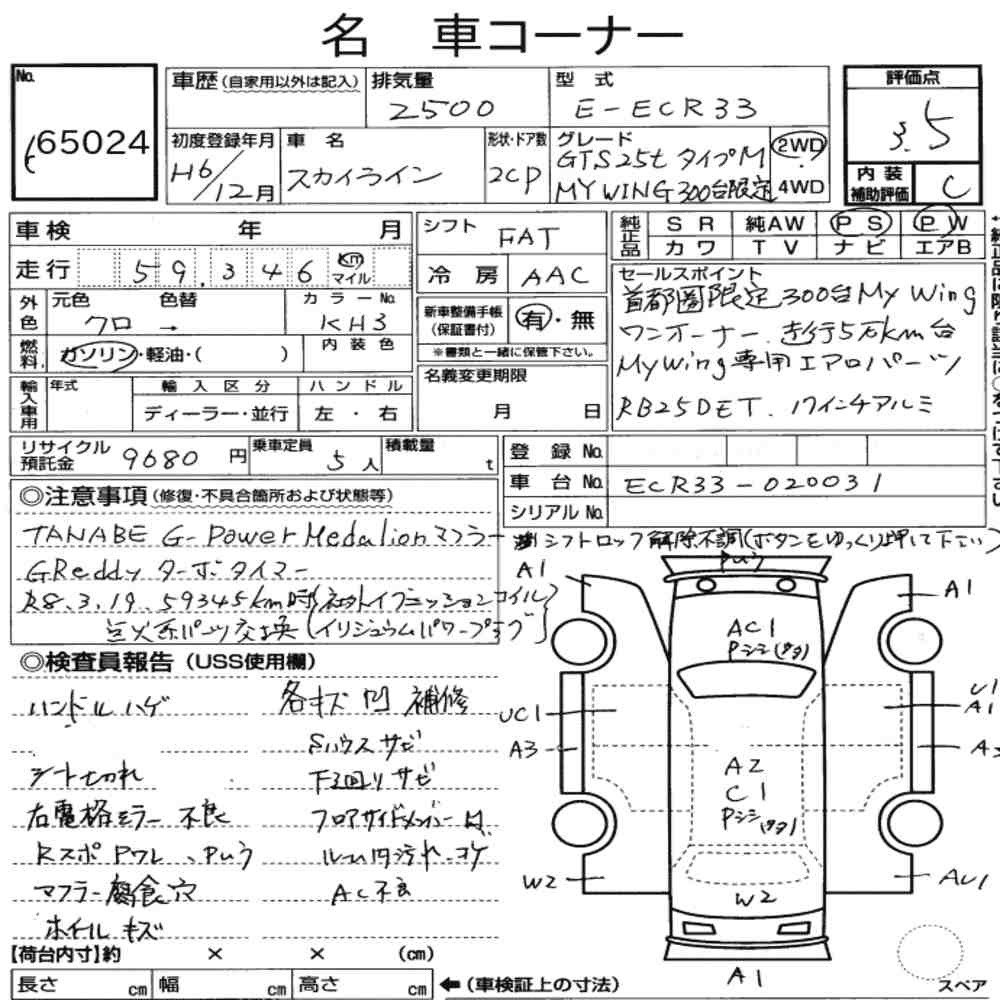 名 車コーナー
No. 65024
車歴 (自家用以外は記入)
排気量 2500
型式 E-ECR33
評価点 3.5
初度登録年月 H6/12月
車名 スカイライン
形状・ドア数 2CP
グレード GTS25t タイプM
MY WING 300台限定
2WD
4WD
内装補助評価 C
車検 年 月
シフト FAT
純正品 SR 純AW PS PW
カワ TV ナビ エアB
走行 59,346 km マイル
冷房 AAC
セールスポイント
首都圏限定300台My Wing
ワンオーナー. 走行5万km台
MyWing専用エアロパーツ
RB25DET. 17インチアルミ
外色 元色 色替 カラーNo.
クロ → KH3
新車整備手帳(保証書付) 有・無
※書類と一緒に保管下さい。
燃料 ガソリン・軽油・( ) 内装色
名義変更期限
月 日
輸入車用 年式 輸入区分 ハンドル
ディーラー・並行 左・右
リサイクル預託金 9680円
乗車定員 5人
積載量 t
登録No.
車台No. ECR33-020031
シリアルNo.
◎注意事項(修復・不具合箇所および状態等)
TANABE G-Power Medalionマフラー
シフトロック解除不調(ボタンをゆっくり押して下さい)
GReddy ターボタイマー
R8.3.19 59345km時(社外イグニッションコイル
点火系パーツ交換(イリジュウムパワープラグ)
◎検査員報告(USS使用欄)
ハンドルハゲ
各キズ凹 補修
Sハウスサビ
シート切れ
下回りサビ
右電格ミラー不良
フロアサイドメンバー凹
Rスポ Pワレ、Pウラ
ルーム内汚れ.コゲ
マフラー腐食穴
AC不良
ホイールキズ
A1
A1
AC1
UC1
U1
A1
A3
A2
C1
W2
W2
AU1
A1
スペア
【荷台内寸】約 × × (cm)
長さ cm 幅 cm 高さ cm
←(車検証上の寸法)